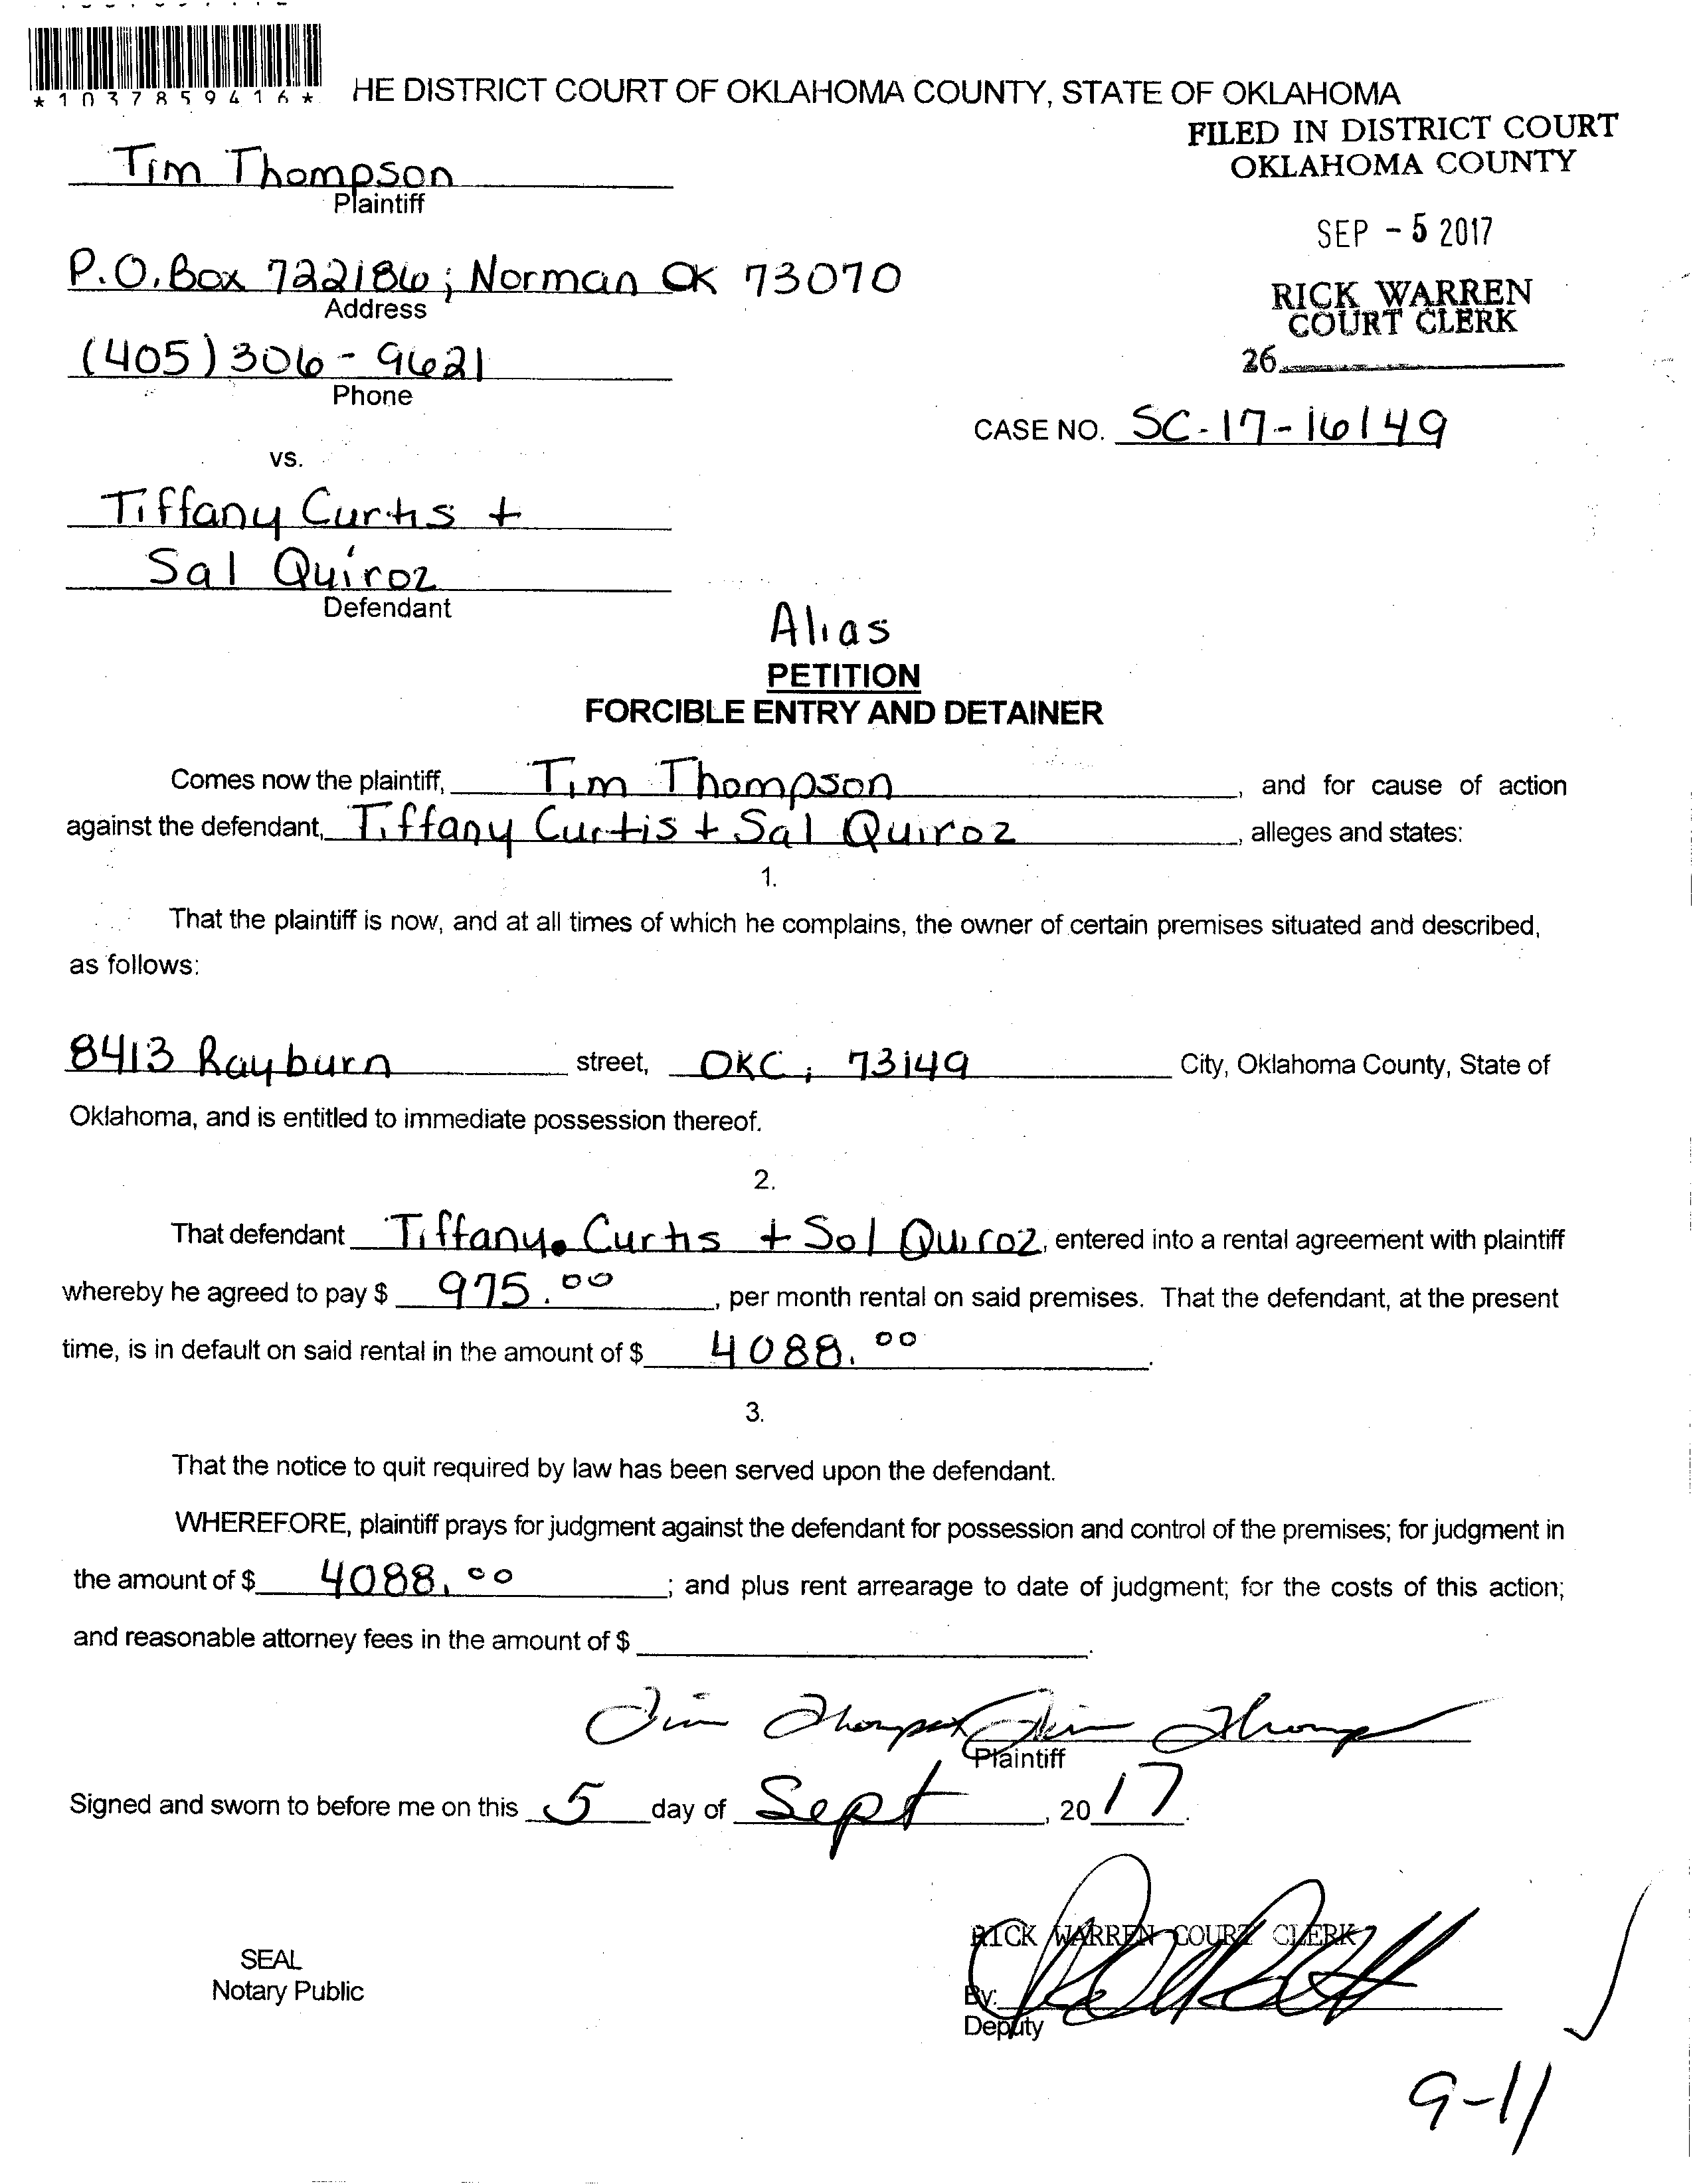 *1037859416*
HE DISTRICT COURT OF OKLAHOMA COUNTY, STATE OF OKLAHOMA
FILED IN DISTRICT COURT
OKLAHOMA COUNTY
Tim Thompson
Plaintiff
SEP - 5 2017
P.O. Box 722186; Norman OK 73070
Address
RICK WARREN
COURT CLERK
(405) 306-9621
Phone
26
CASE NO. SC-17-16149
vs.
Tiffany Curtis +
Sal Quiroz
Defendant
Alias
PETITION
FORCIBLE ENTRY AND DETAINER
Comes now the plaintiff, Tim Thompson, and for cause of action
against the defendant, Tiffany Curtis + Sal Quiroz, alleges and states:
1.
That the plaintiff is now, and at all times of which he complains, the owner of certain premises situated and described,
as follows:
8413 Rayburn street, OKC, 73149 City, Oklahoma County, State of
Oklahoma, and is entitled to immediate possession thereof.
2.
That defendant Tiffany Curtis + Sol Quiroz, entered into a rental agreement with plaintiff
whereby he agreed to pay $ 975.00, per month rental on said premises. That the defendant, at the present
time, is in default on said rental in the amount of $ 4088.00.
3.
That the notice to quit required by law has been served upon the defendant.
WHEREFORE, plaintiff prays for judgment against the defendant for possession and control of the premises; for judgment in
the amount of $ 4088.00; and plus rent arrearage to date of judgment; for the costs of this action;
and reasonable attorney fees in the amount of $.
Tim Thompson Tim Thomp
Plaintiff
Signed and sworn to before me on this 5 day of Sept, 2017.
RICK WARREN COURT CLERK
SEAL
Notary Public
By:
Deputy
9-11